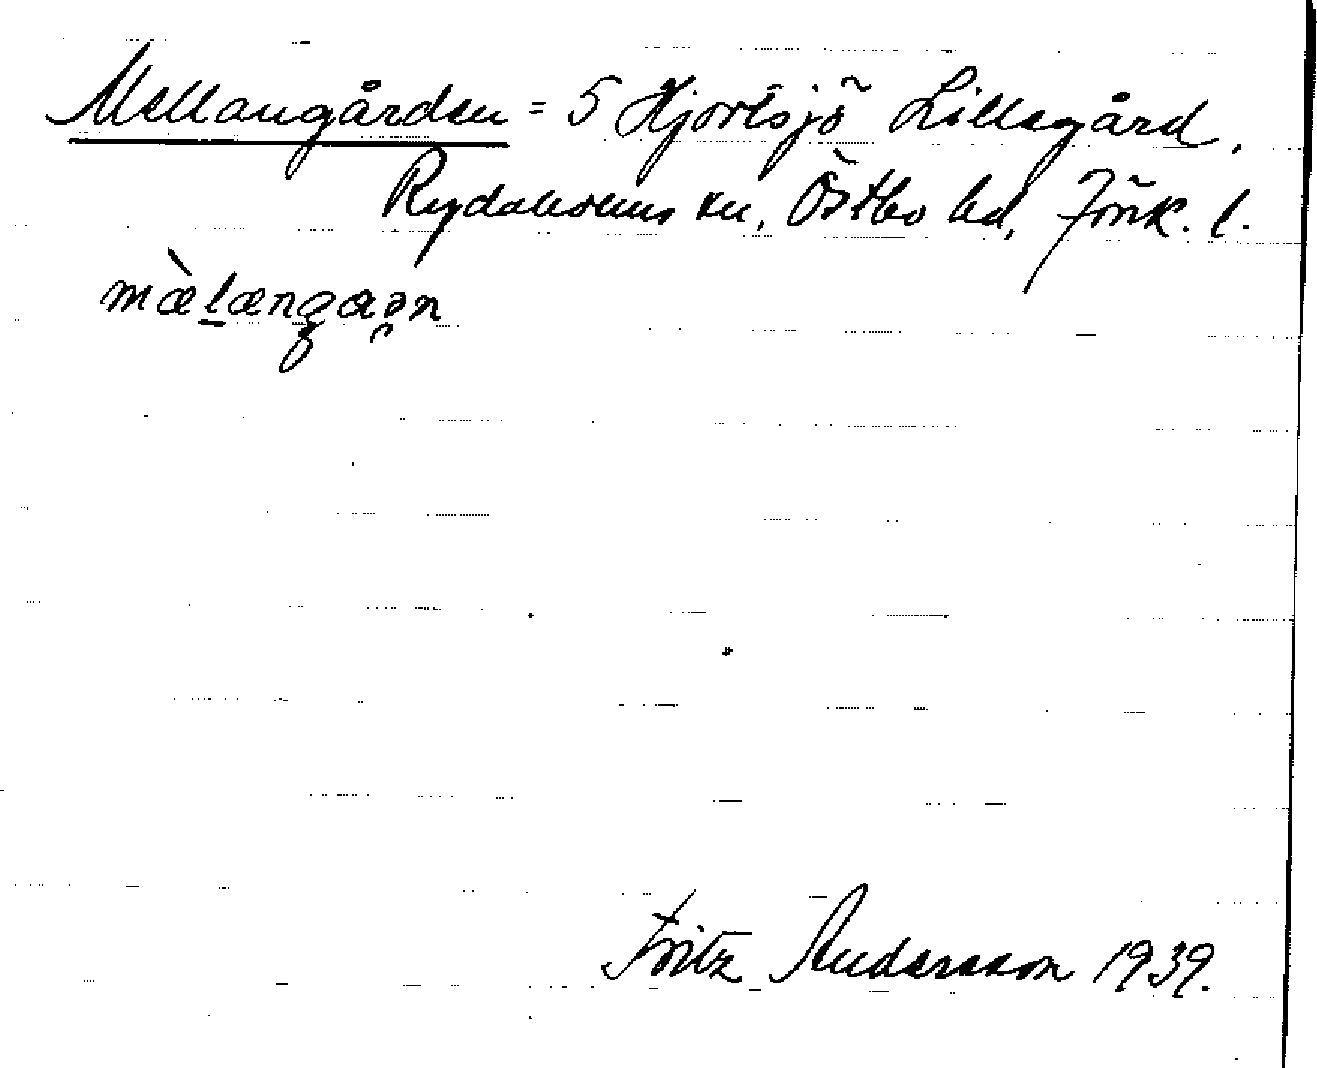 Mellangården = 5 Hjortsjö Lillegård,
Rydaholms sn, Östbo hd, Jönk. l.
mæ̀længaən
Fritz Andersson 1939.